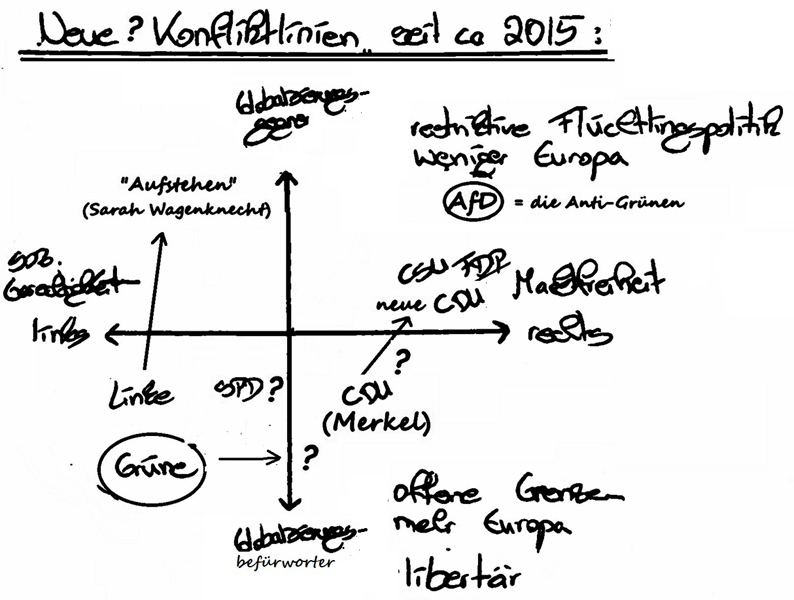 Neue? Konfliktlinien seit ca 2015:
Globalisierungs-
gegner
restriktive Flüchtlingspolitik
weniger Europa
AfD = die Anti-Grünen
"Aufstehen"
(Sarah Wagenknecht)
soz.
Gerechtigkeit
links
CSU FDP
neue CDU
Marktfreiheit
rechts
?
Linke
SPD?
CDU
(Merkel)
Grüne
?
offene Grenzen
mehr Europa
libertär
Globalisierungs-
befürworter